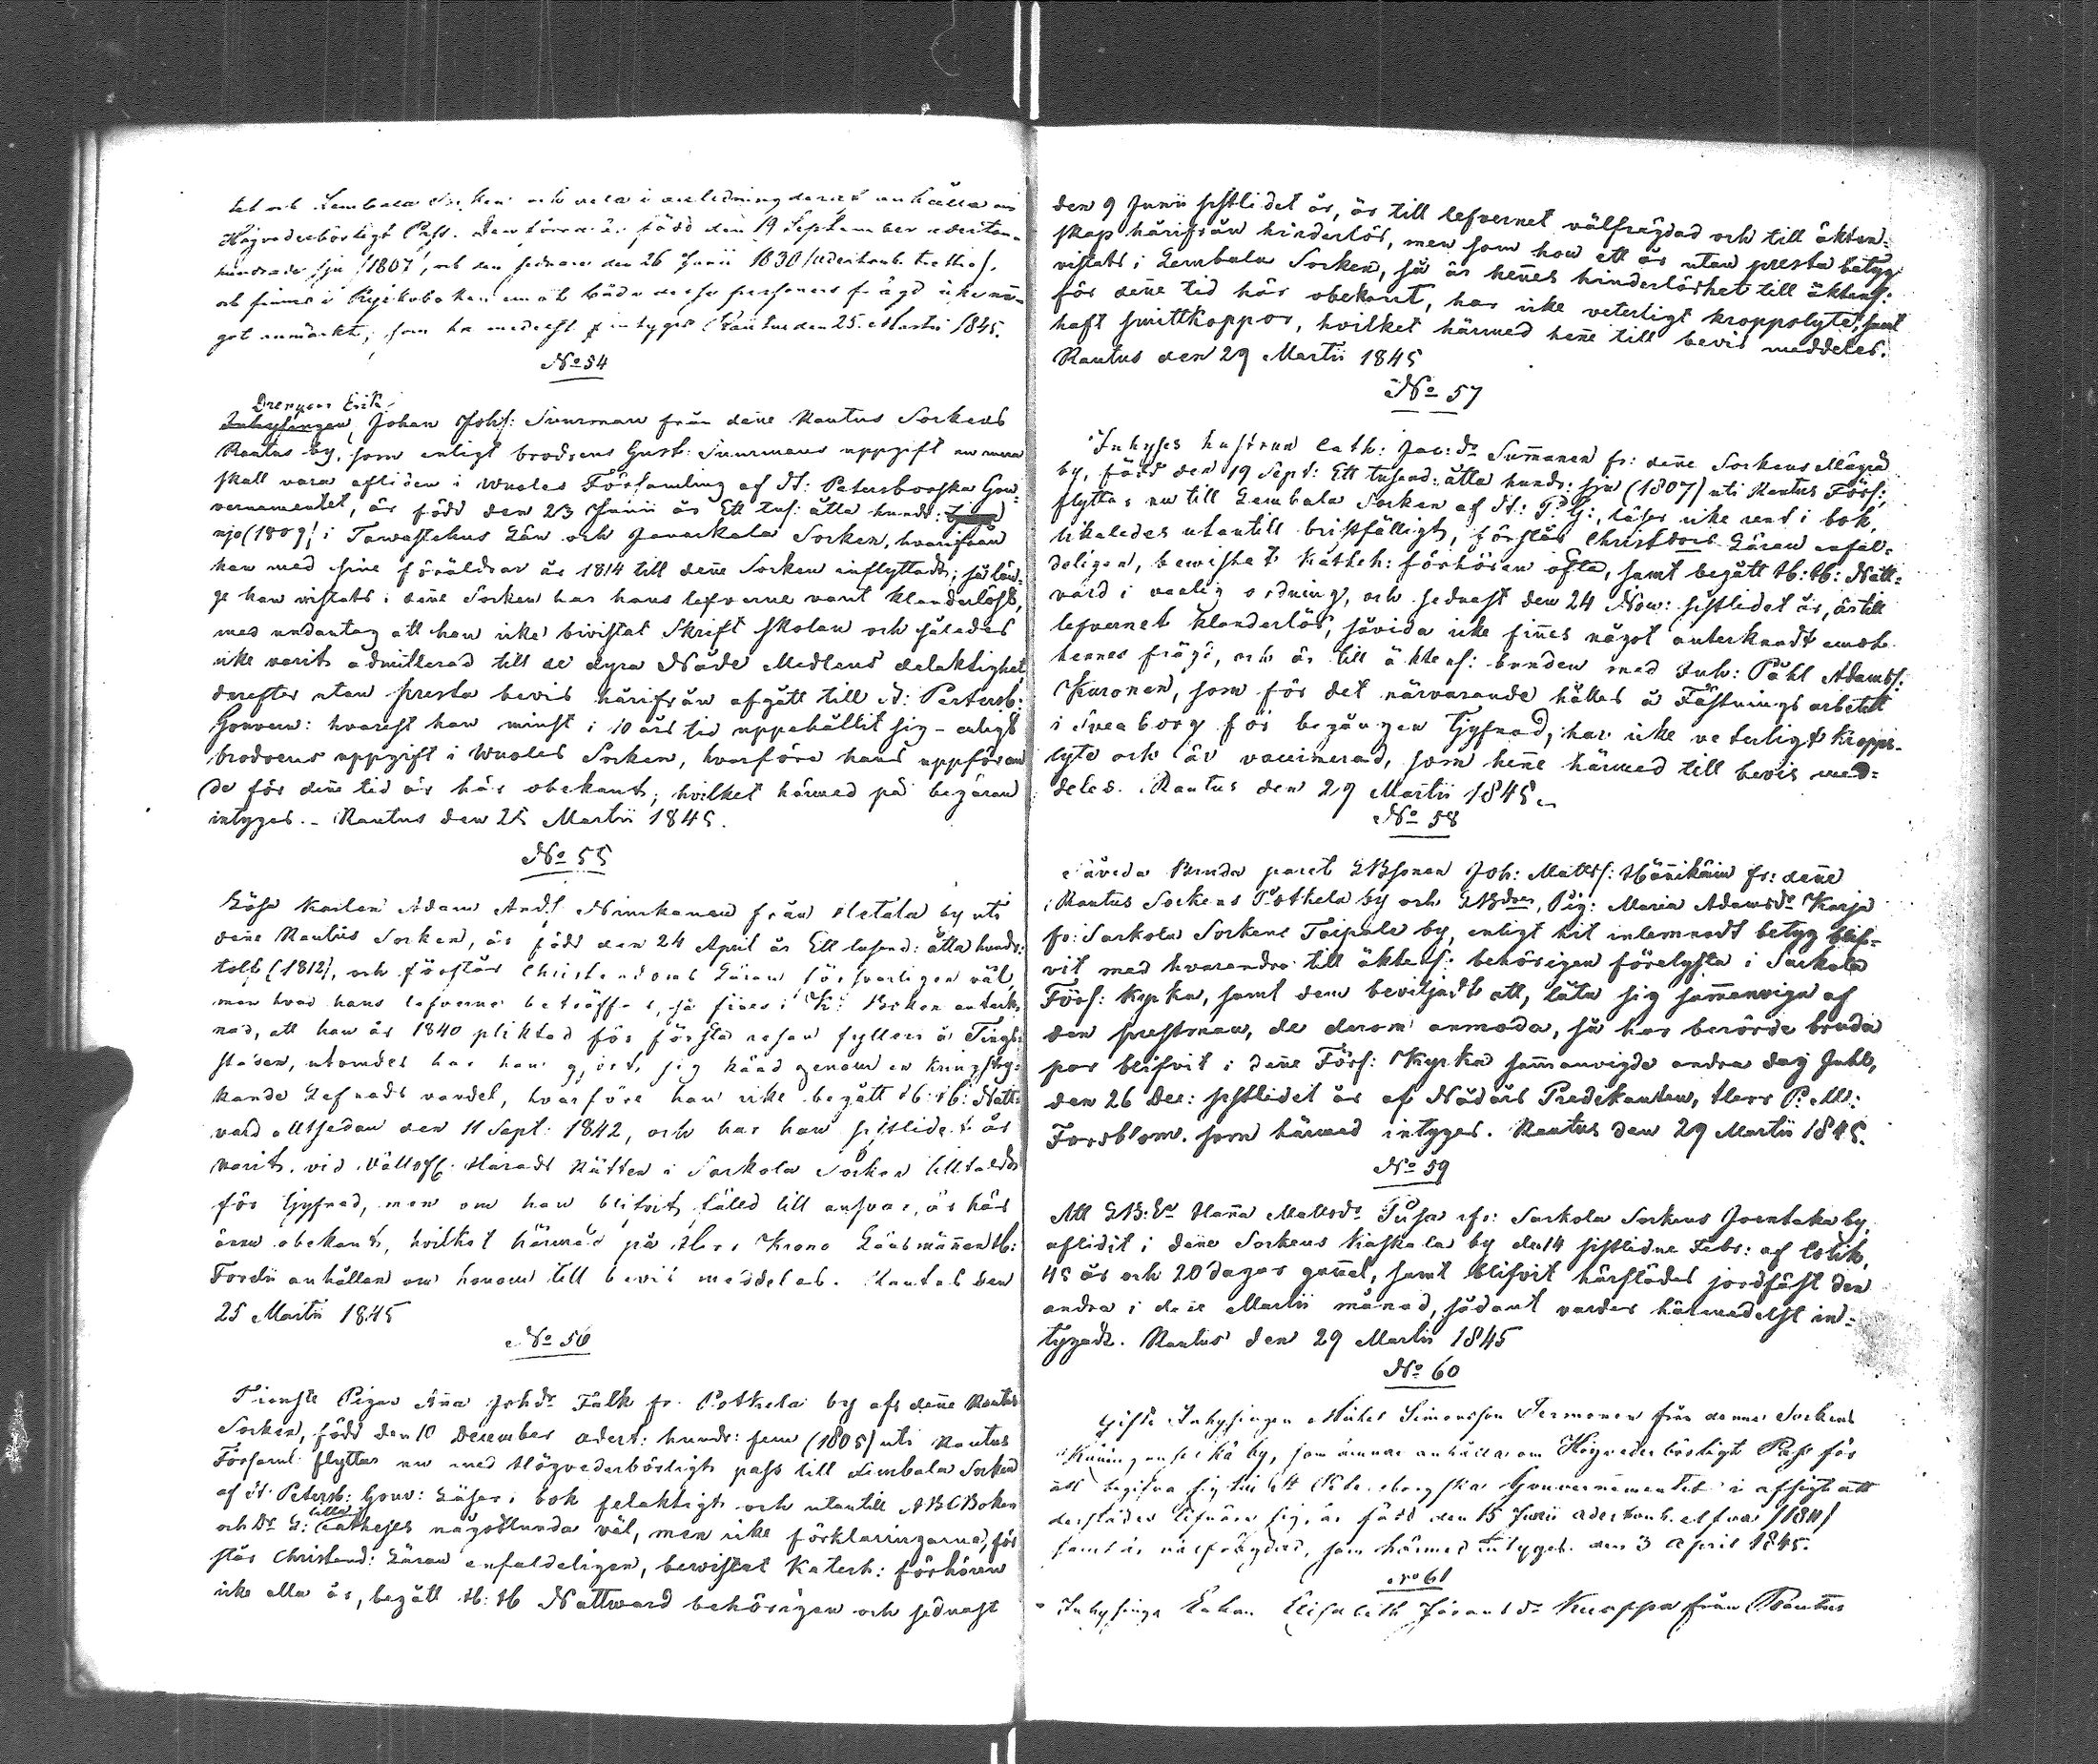 tet och Lembala Socken och vela i anledning deraf anhålla om
Högvederbörligt Pass. Den förra är född den 19 September aderton-
hundrade sju /1807/, och den sednare den 26 Junii 1830 /adertonh. trettio/.
och finnes i Kyrkoboken emot båda desse personers frägd icke nå-
got anmärkt; som härmedelst intygas. Rautus den 25. Martii 1845.
No 54
Drengen Erik
Inhysingen, Johan Johs: Suurman från denne Rautus Sockens
Rautus by, som enligt brodrens Gust: Suurmans uppgift nu mera
skall vara afliden i Wuoles Församling af St: Petersborgska Gou-
vernementet, är född den 23 Junii år Ett tus: åtta hundr:
nio (1809) i Tawastehus Län och Janackala Socken, hvarifrån
han med sine föräldrar år 1814 till denne Socken inflyttade; så län-
ge han vistats i denne Socken har hans lefverne varit klanderlöst,
med undantag att han icke bivistat Skrift skolan och således
icke varit admitterad till de dyra Nåde Medlens delaktighet
derefter utan presta bevis härifrån afgått till St: Petersb:
Gouvern: hvarest han minst i 10 års tid uppehållit sig - enligt
brodrens uppgift i Wuoles Socken, hvarföre hans uppföran
de för denne tid är här obekant; hvilket härmed på begäran
intygas. - Rautus den 25 Martii 1845.
No 55
Löse Karlen Adam And:s Ninikanen från Metälä by uti
denne Rautus Socken, är född den 24 April år Ett tusend: åtta hundr:
tolf (1812), och förstår Christendoms Läran försvarligen väl,
men hvad hans lefverne beträffar, så finnes i K: Boken anteck-
nad, att han år 1840 pliktad för första resan fylleri å Tings-
staden, utomdes har han gjort sig känd genom en kringstry-
kande Lefnads vandel, hvarföre han icke begått H: H: Natt-
vard alltsedan den 11 Sept: 1842, och har han sistlidet år
varit vid Härads Rätten i Sackola Socken tilltalad
för tjufnad, men om han blifvit fälld till ansvar, är här
ännu obekant, hvilket härmed på Herr Krono Länsmannen H:
Fordii anhållan om honom till bevis meddelas. Rautus den
25 Martii 1845
No 56
Tienste Pigan Anna Johdr Falk fr. Potkela by af denne Rautus
Socken, född den 10 December adert: hundr: fem (1805) uti Rautus
Församl: flyttar nu med Högvederbörligt pass till Lembala Socken
af St: Petersb: Gouv: Läser i bok felaktigt och utantill ABC Boken
och Dr L: lilla Catheches någorlunda väl, men icke förklaringarna, för
står Christend: Läran enfaldeligen, bewistat Katech: förhören
icke alla år, begått H: H Nattward behörigen och sednast
den 9 Junii sistlidet år, är till lefvernet välfrägdad och till äkten-
skap härifrån hinderlös, men som hon ett år utan presta betyg
vistats i Lembala Socken, så är hennes hinderlöshet till äktens:
för denne tid här obekant, har icke veterligt kroppslyte, samt
haft smittkoppor, hvilket härmed henne till bevis meddeles.
Rautus den 29 Martii 1845
No 57
Inhyses hustrun Cath: Jac:dr Summanen fr: denne Sockens Mägrä
by, född den 19 Sept: Ett tusend: åtta hundr: sju (1807) uti Rautus Förs:,
flyttar nu till Lembala Socken af St: P: G:, läser icke rent i bok,
likaledes utantill bristfälligt, förstår Christdoms Läran enfal-
deligen, bewistat Katheh: förhören ofta, samt begått H: H: Natt-
vard i vanlig ordning, och sednast den 24 Now: sistlidet år, är till
lefvernet klanderlös, såvida icke finnes något anteknadt emot
hennes frägd, och är till äktens: bunden med Inh: Påhl Adamss:
Kuronen, som för det närvarande hålles å Fästnings arbetet
i Sveaborg för begången tjufnad; har icke veterligt kropps-
lyte och är vaccinerad, som henne härmed till bevis med-
deles. Rautus den 29 Martii 1845.
No 58
Såvida Bruda paret LBsonen Joh: Matts: Hännikäin fr: denne
Rautus Sockens Potkela by och LBdr, Pig: Maria Adamsdr Karja
fr: Sackola Sockens Taipale by, enligt hit inlemnadt betyg blif-
vit med hvarandra till äktens: behörigen förelysta i Sackola
Förs: Kyrka, samt dem beviljadt att, låta sig sammanviga af
den prestman, de derom anmoda, så har berörde bruda
par blifvit i denne Förs: Kyrka sammanvigde andra dag Jule,
den 26 Dec: sistlidit år af Nådårs Predikanten, Herr P: M:
Forsblom. som härmed intyges. Rautus den 29 Martii 1845.
No 59
Att LB: Er Hanna Mattsdr Pusa fr: Sackola Sockens Joentaka by,
aflidit i denne Sockens Kaskala by den 14 sistlidne Febr: af Colik,
45 år och 20 dagar gammal, samt blifvit härstädes jordfäst den
andra i denne Martii månad, sådant varder härmedelst in-
tygadt. Rautus den 29 Martii 1845
No 60
Gifte Inhysingen Mickel Simonsson Termonen från denne Sockens
by, som ämnar anhålla om Högvederbörligt Pass för
att begifva sig till St Petersborgska Gouvernementet i afsigt att
derstädes lifnära sig, är född den 15 Junii adertonh. elfva /1811/
samt är välfrägdad, som härmed intyges den 3 April 1845.
No 61
Inhysinge Enkan Elisabeth Jöransdr Knappa från Rautus